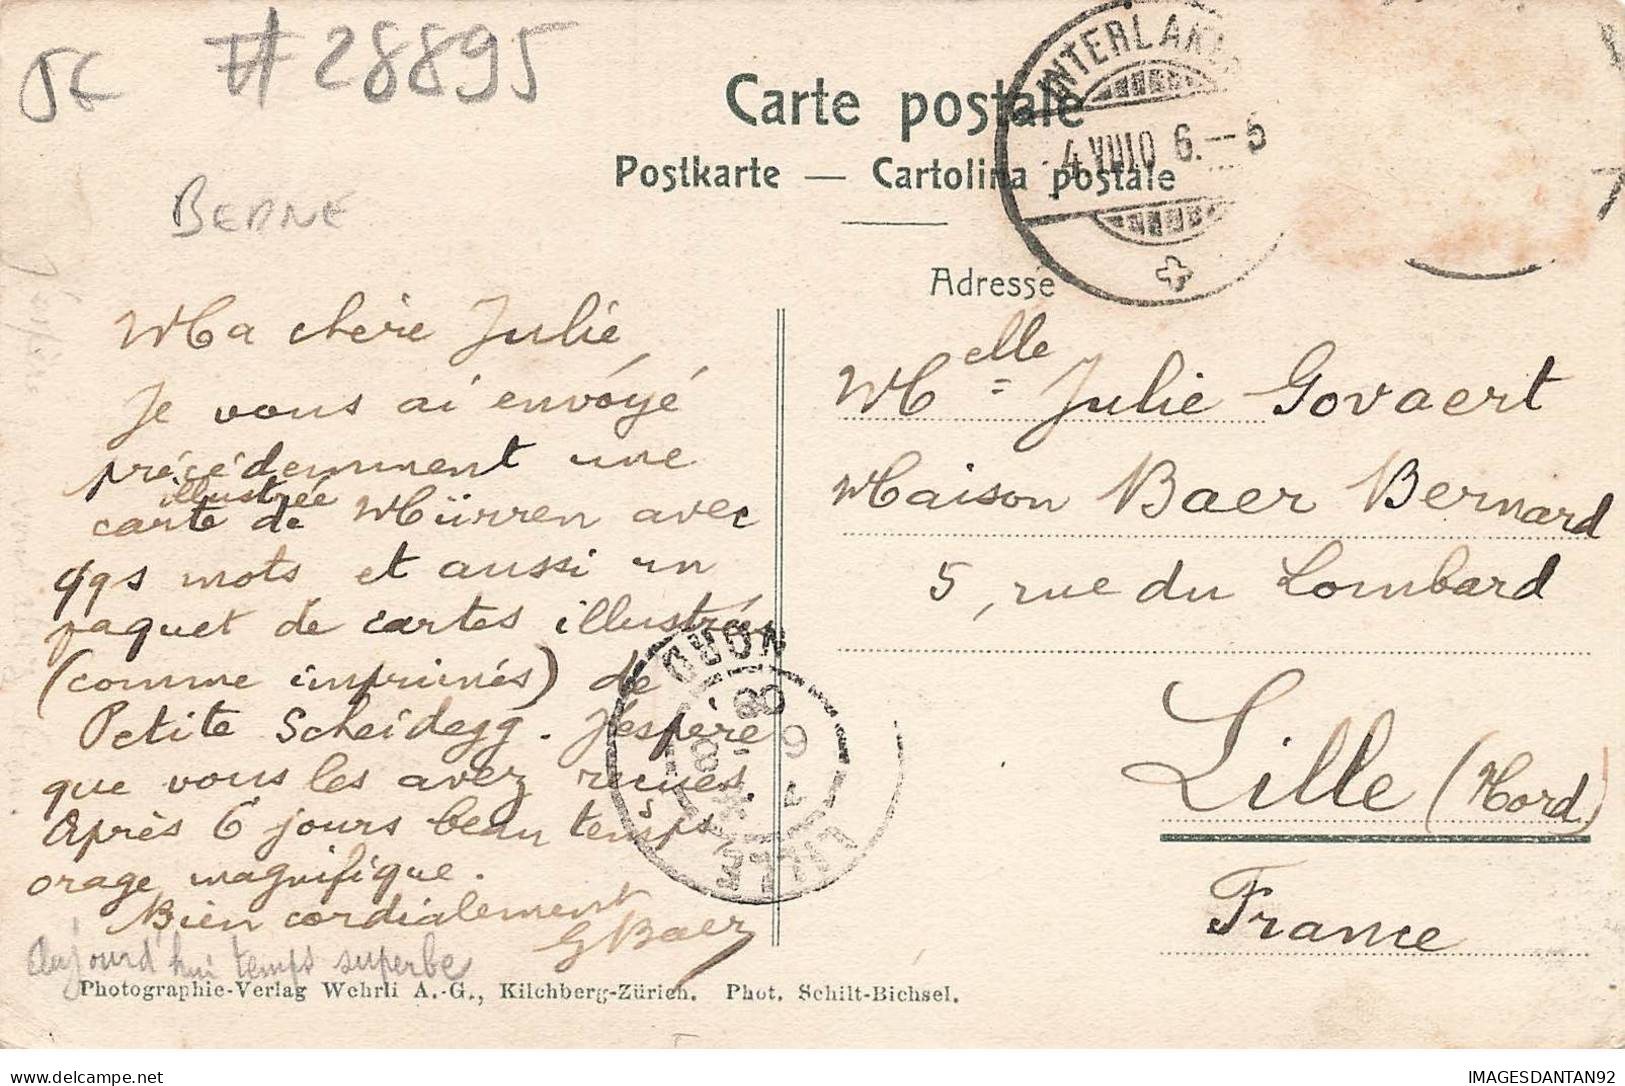 5€ #28895
BERNE
Carte postale
Postkarte — Cartolina postale
Adresse
INTERLAKEN
4.VIII10 6.--5
Ma chère Julie,
Je vous ai envoyé
précédemment une
illustrée
carte de Mürren avec
qqs mots et aussi un
paquet de cartes illustrées
(comme imprimés) de
Petite Scheidegg. J'espère
que vous les avez reçues.
Après 6 jours beau temps,
orage magnifique.
Bien cordialement
G Baer
Aujourd'hui temps superbe
Melle Julie Govaert
Maison Baer Bernard
5, rue du Lombard
Lille (Nord)
France
LILLE
NORD
Photographie-Verlag Wehrli A.-G., Kilchberg-Zürich. Phot. Schilt-Bichsel.
IMAGESDANTAN92